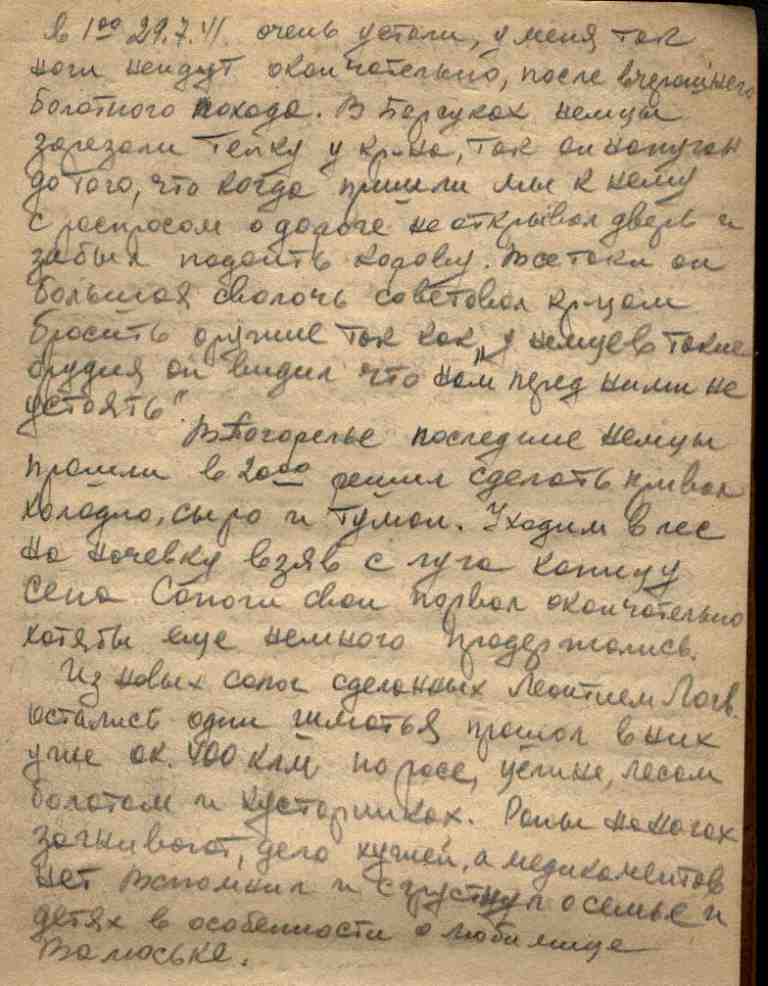 в 1⁰⁰ 29.7.41. очень устали, у меня так
ноги нейдут окончательно, после вчерашнего
болотного похода. В Барсуках немцы
зарезали телку у кр-на, так он напуган
до того, что когда пришли мы к нему
с роспросом о дороге не открывал дверь и
забыл подоить корову. Всетаки он
большая сволочь советовал кр-цам
бросить оружие так как "у немцев такие
орудия он видил что нам перед ними не
устоять"
В Погорелье последние немцы
прошли в 20⁰⁰ решил сделать привал
холодно, сыро и туман. Уходим в лес
на ночевку взяв с луга копицу
сена Сапоги свои порвал окончательно
хотябы еще немного продержались.
Из новых сапог сделанных Леонтием Логв.
остались одни лимотья прошол в них
уже ок. 400 клм по росе, целине, лесам
болотам и кустарникам. Раны на ногах
загнивают, дело хужей, а медикаментов
нет Вспомнил и сгрустнул о семье и
детях в особенности о любимице
Валюське.